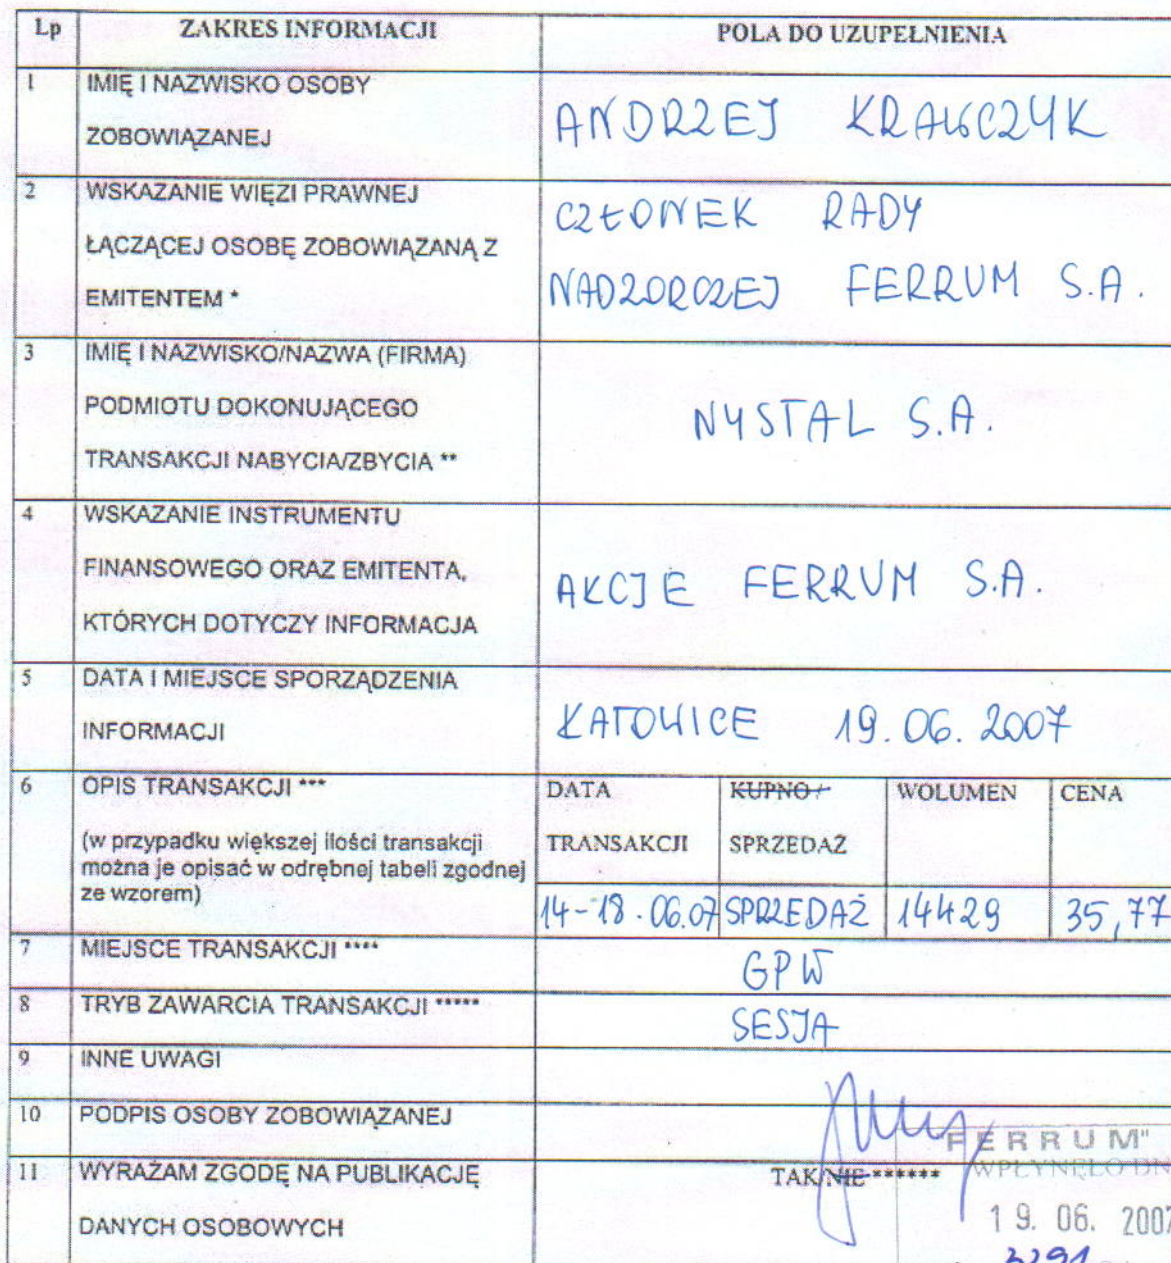 Lp ZAKRES INFORMACJI POLA DO UZUPEŁNIENIA
1 IMIĘ I NAZWISKO OSOBY
ZOBOWIĄZANEJ
ANDRZEJ KRAWCZYK
2 WSKAZANIE WIĘZI PRAWNEJ
ŁĄCZĄCEJ OSOBĘ ZOBOWIĄZANĄ Z
EMITENTEM *
CZŁONEK RADY
NADZORCZEJ FERRUM S.A.
3 IMIĘ I NAZWISKO/NAZWA (FIRMA)
PODMIOTU DOKONUJĄCEGO
TRANSAKCJI NABYCIA/ZBYCIA **
NYSTAL S.A.
4 WSKAZANIE INSTRUMENTU
FINANSOWEGO ORAZ EMITENTA,
KTÓRYCH DOTYCZY INFORMACJA
AKCJE FERRUM S.A.
5 DATA I MIEJSCE SPORZĄDZENIA
INFORMACJI
KATOWICE 19.06.2007
6 OPIS TRANSAKCJI ***
(w przypadku większej ilości transakcji
można je opisać w odrębnej tabeli zgodnej
ze wzorem)
DATA KUPNO / WOLUMEN CENA
TRANSAKCJI SPRZEDAŻ
14-18.06.07 SPRZEDAŻ 14429 35,77
7 MIEJSCE TRANSAKCJI ****
GPW
8 TRYB ZAWARCIA TRANSAKCJI *****
SESJA
9 INNE UWAGI
10 PODPIS OSOBY ZOBOWIĄZANEJ
11 WYRAŻAM ZGODĘ NA PUBLIKACJĘ
DANYCH OSOBOWYCH
TAK/NIE ******
FERRUM"
WPŁYNĘŁO DN
19. 06. 2007
3291